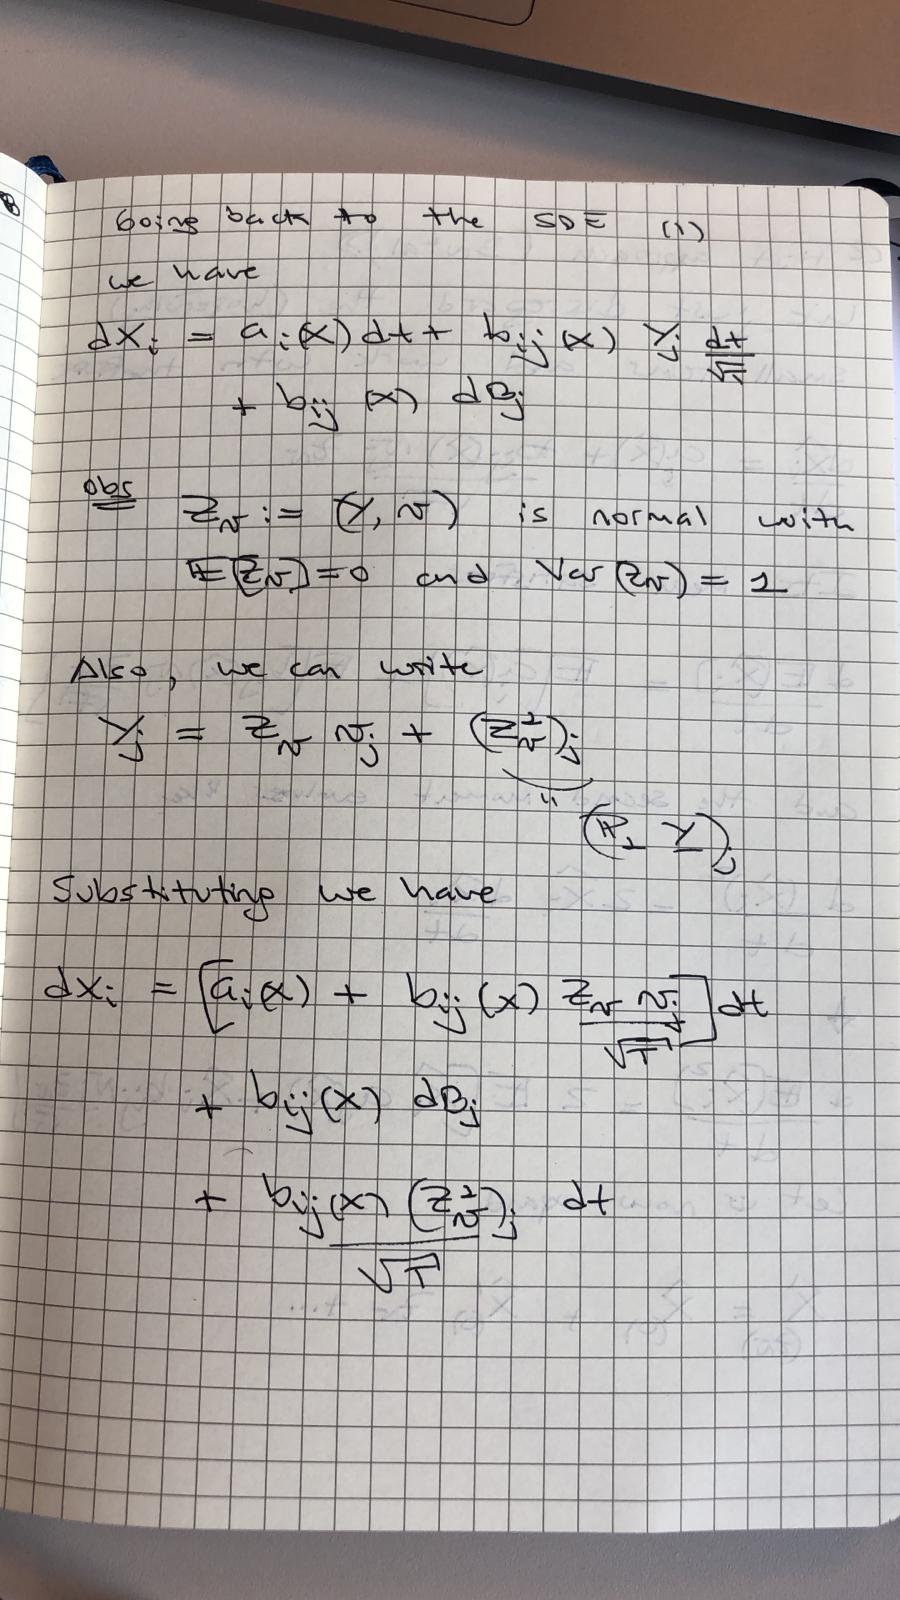 Going back to the SDE (1)
we have
dXᵢ = aᵢ(X) dt + bᵢⱼ(X) Yⱼ dt/√T
+ bᵢⱼ(X) dBⱼ
Obs Z_v := (Y, v) is normal with
E[Z_v] = 0 and Var(Z_v) = 1
Also, we can write
Yⱼ = Z_v vⱼ + (Z_v^⊥)ⱼ
"
(P_⊥ Y)ⱼ
Substituting we have
dXᵢ = [aᵢ(X) + bᵢⱼ(X) Z_v vⱼ/√T] dt
+ bᵢⱼ(X) dBⱼ
+ bᵢⱼ(X) (Z_v^⊥)ⱼ/√T dt